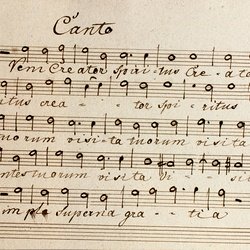 Canto
Veni Creator spiritus Cre - ato
ritus crea - - tor spi - ritus
tuorum visita tuorum visita
ntes tuorum visita vi - si
imple superna gra - - tia